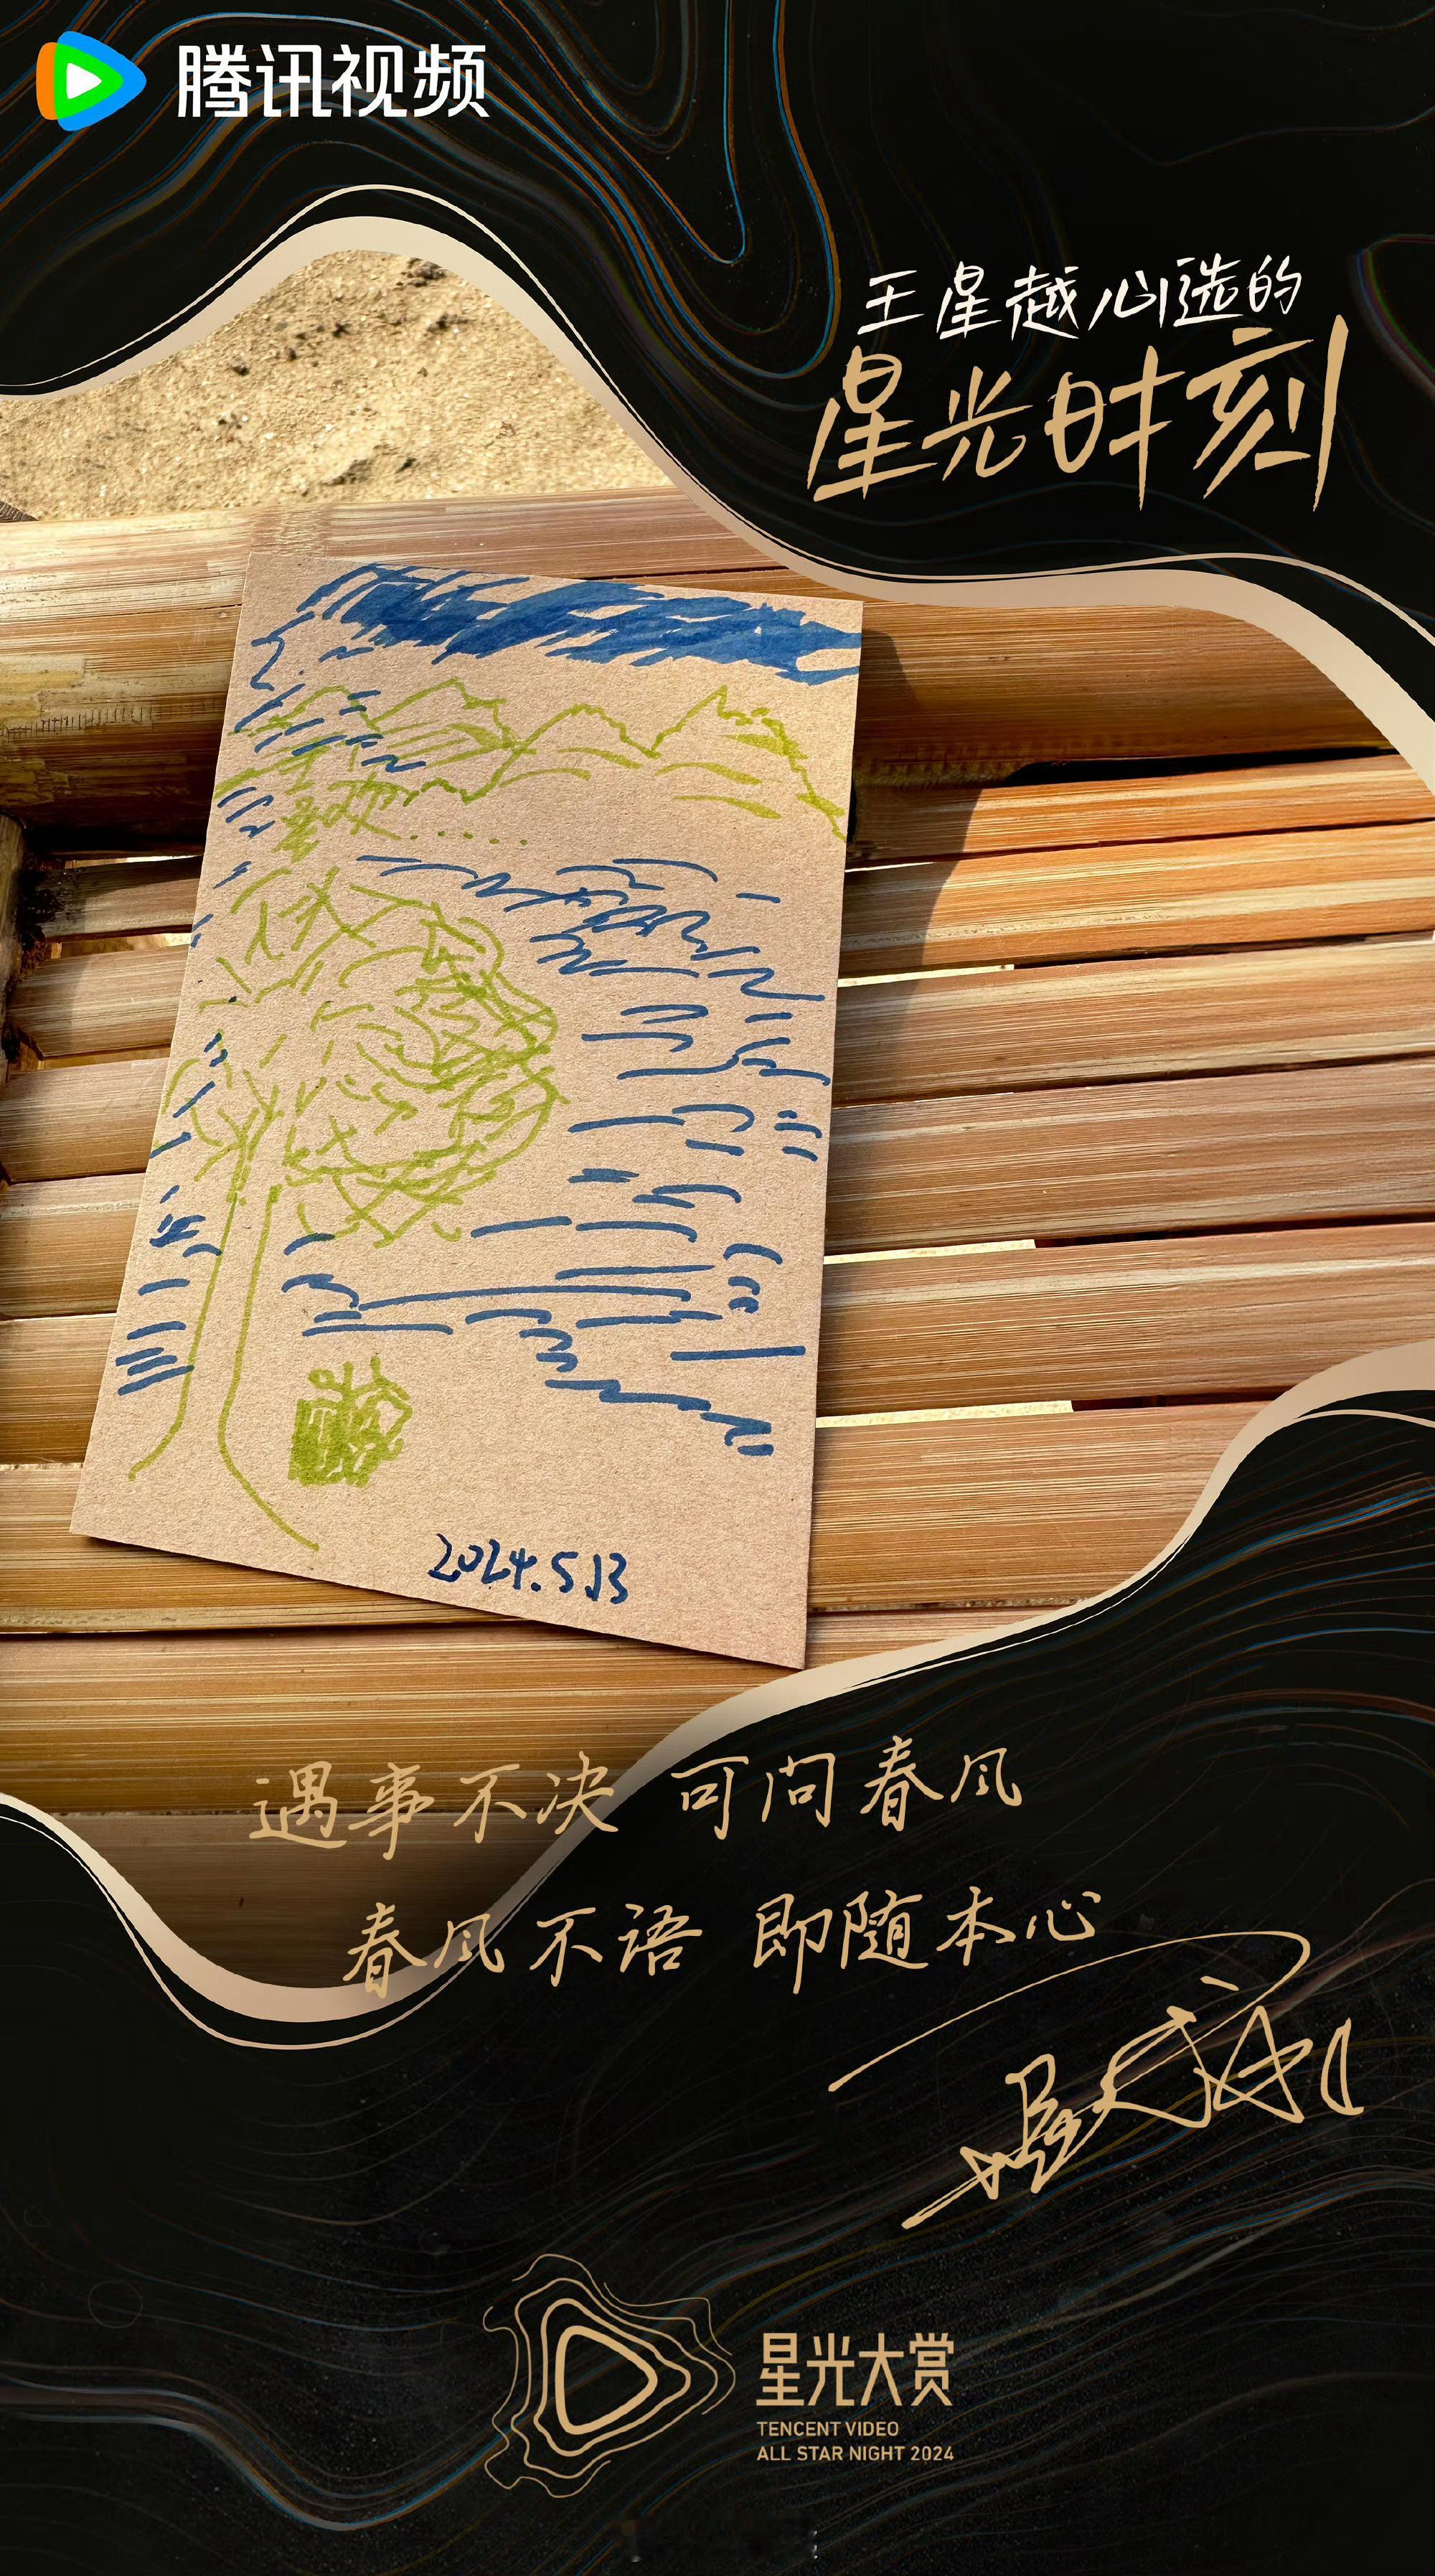 腾讯视频
王星越心选的
星光时刻
2024.5.13
遇事不决 可问春风
春风不语 即随本心
星光大赏
TENCENT VIDEO
ALL STAR NIGHT 2024